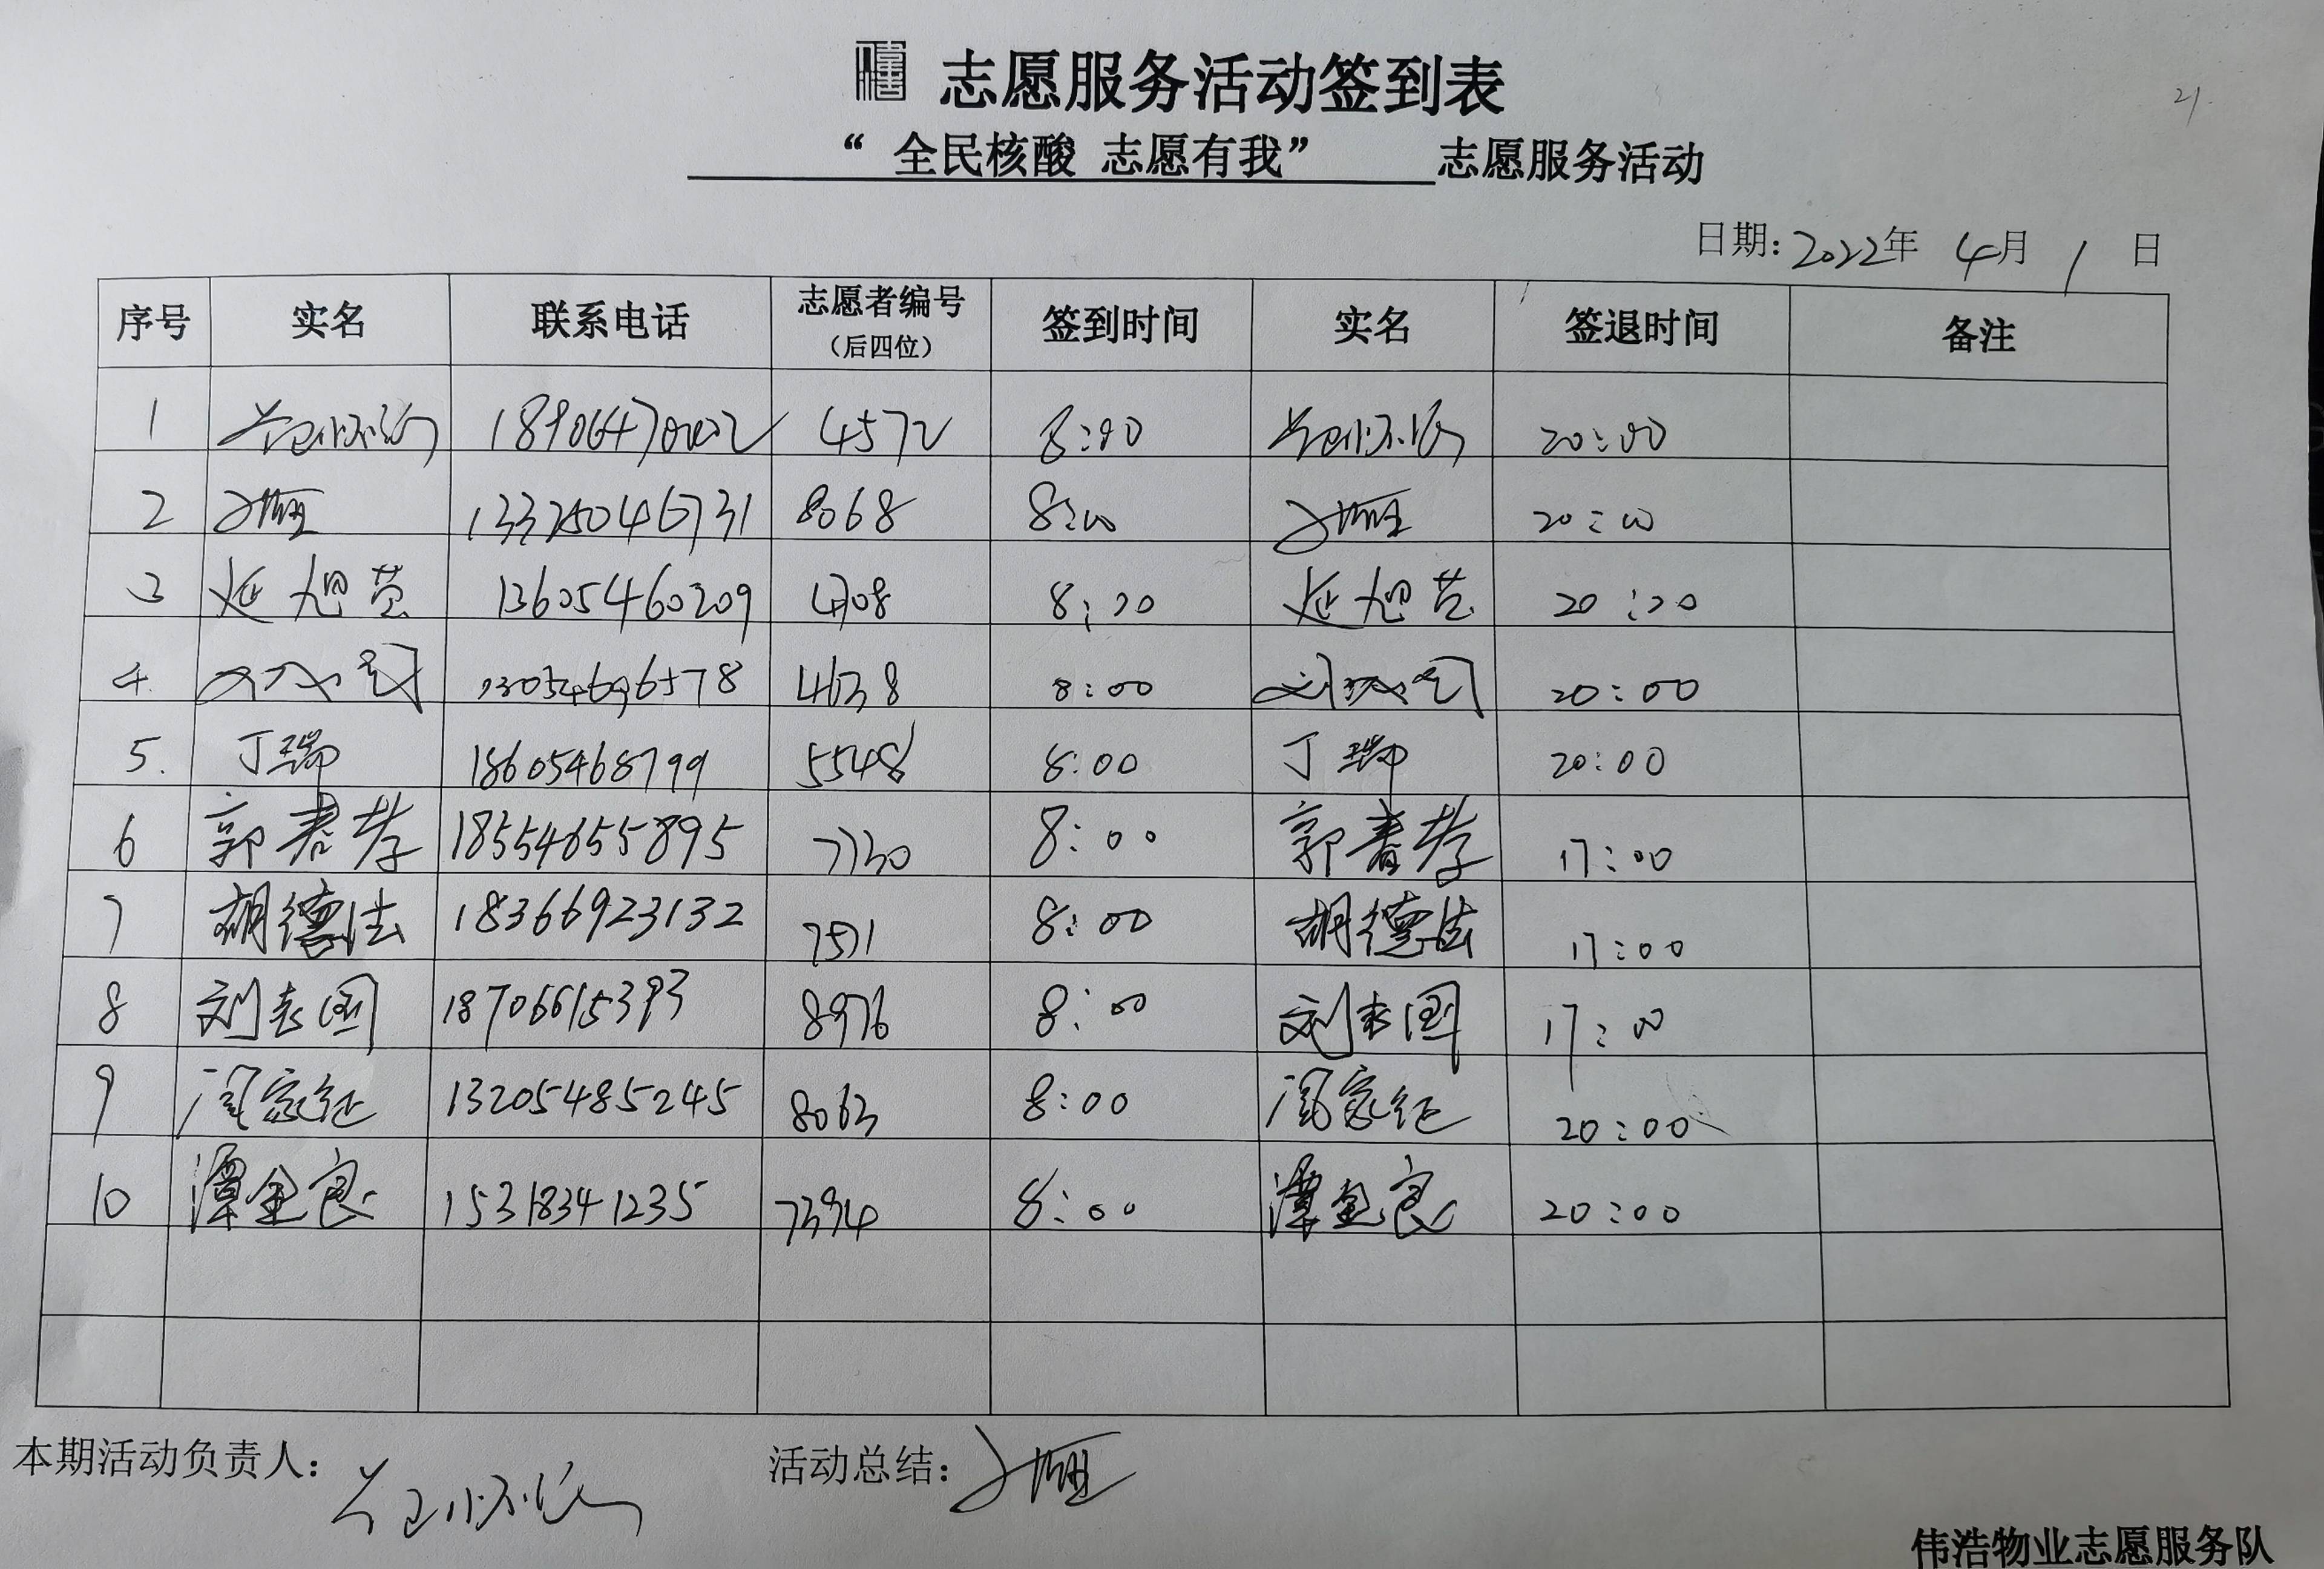 志愿服务活动签到表
21.
“ 全民核酸 志愿有我” 志愿服务活动
日期: 2022年 4月 1 日
序号 实名 联系电话 志愿者编号（后四位） 签到时间 实名 签退时间 备注
1 4572 8:00 20:00
2 13325046731 8068 8:00 20:00
3 延旭芸 13605460209 4708 8:20 延旭芸 20:20
4. 13054696578 4638 8:00 20:00
5. 丁瑞 18605468799 5548 8:00 丁瑞 20:00
6 郭春孝 18554655895 7730 8:00 郭春孝 17:00
7 胡德法 18366923132 7571 8:00 胡德法 17:00
8 刘志国 18706615393 8976 8:00 刘志国 17:00
9 13205485245 8063 8:00 20:00
10 潭金良 15318341235 7394 8:00 潭金良 20:00
本期活动负责人: 活动总结:
伟浩物业志愿服务队